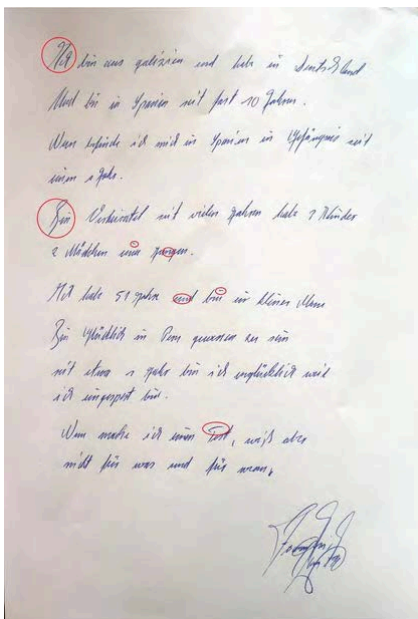 Ich bin aus galizien und lebe in Deutschland
Und bin in Spanien seit fast 10 Jahren.
Nun befinde ich mich in Spanien in Gefängnis seit
einem 1 Jahr.
Bin Verheiratet seit vielen Jahren habe 3 Kinder
2 Mädchen und jungen.
Ich habe 51 Jahre und bin ein kleiner Mann
Bin Glücklich in gewesen zu sein
seit etwa 1 Jahr bin ich unglücklich weil
ich eingesperrt bin.
Nun mache ich einen Test, weiß aber
nicht für was und für wenn,